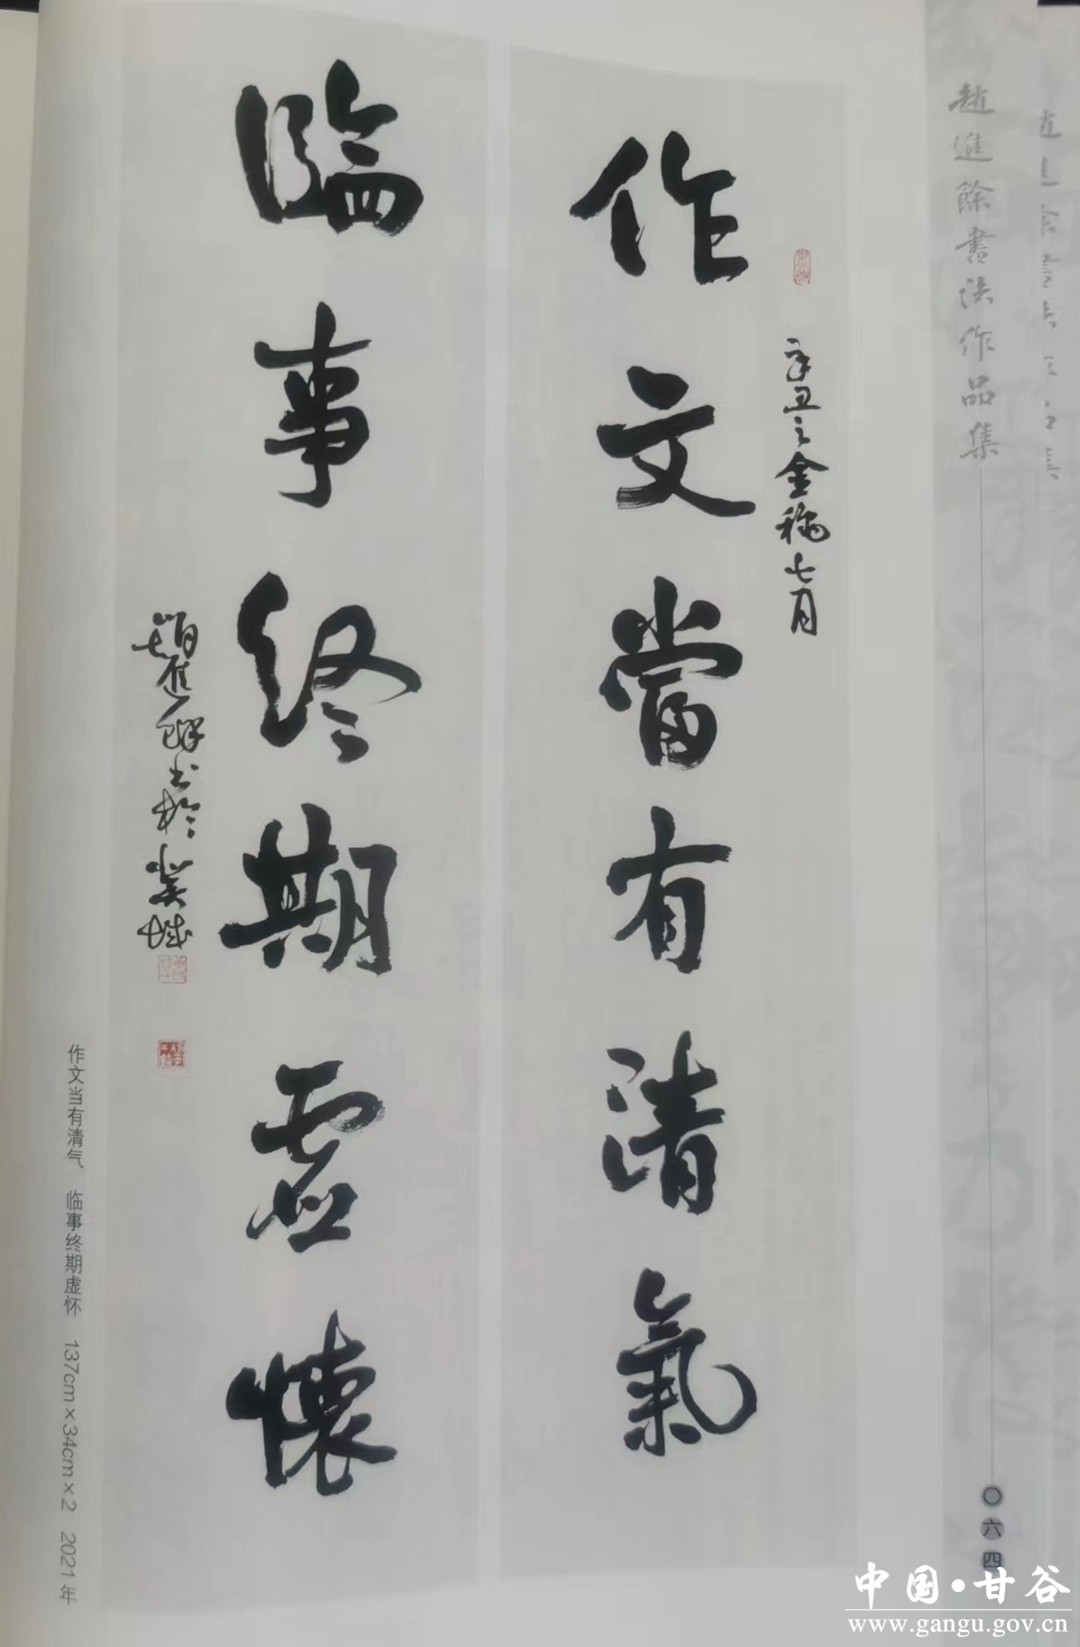 趙進餘書法作品集
辛丑之金秋七月
作文當有清氣
臨事終期虛懷
趙進餘書於冀城
作文当有清气 临事终期虚怀 137cm×34cm×2 2021年
〇六四
中国·甘谷
www.gangu.gov.cn